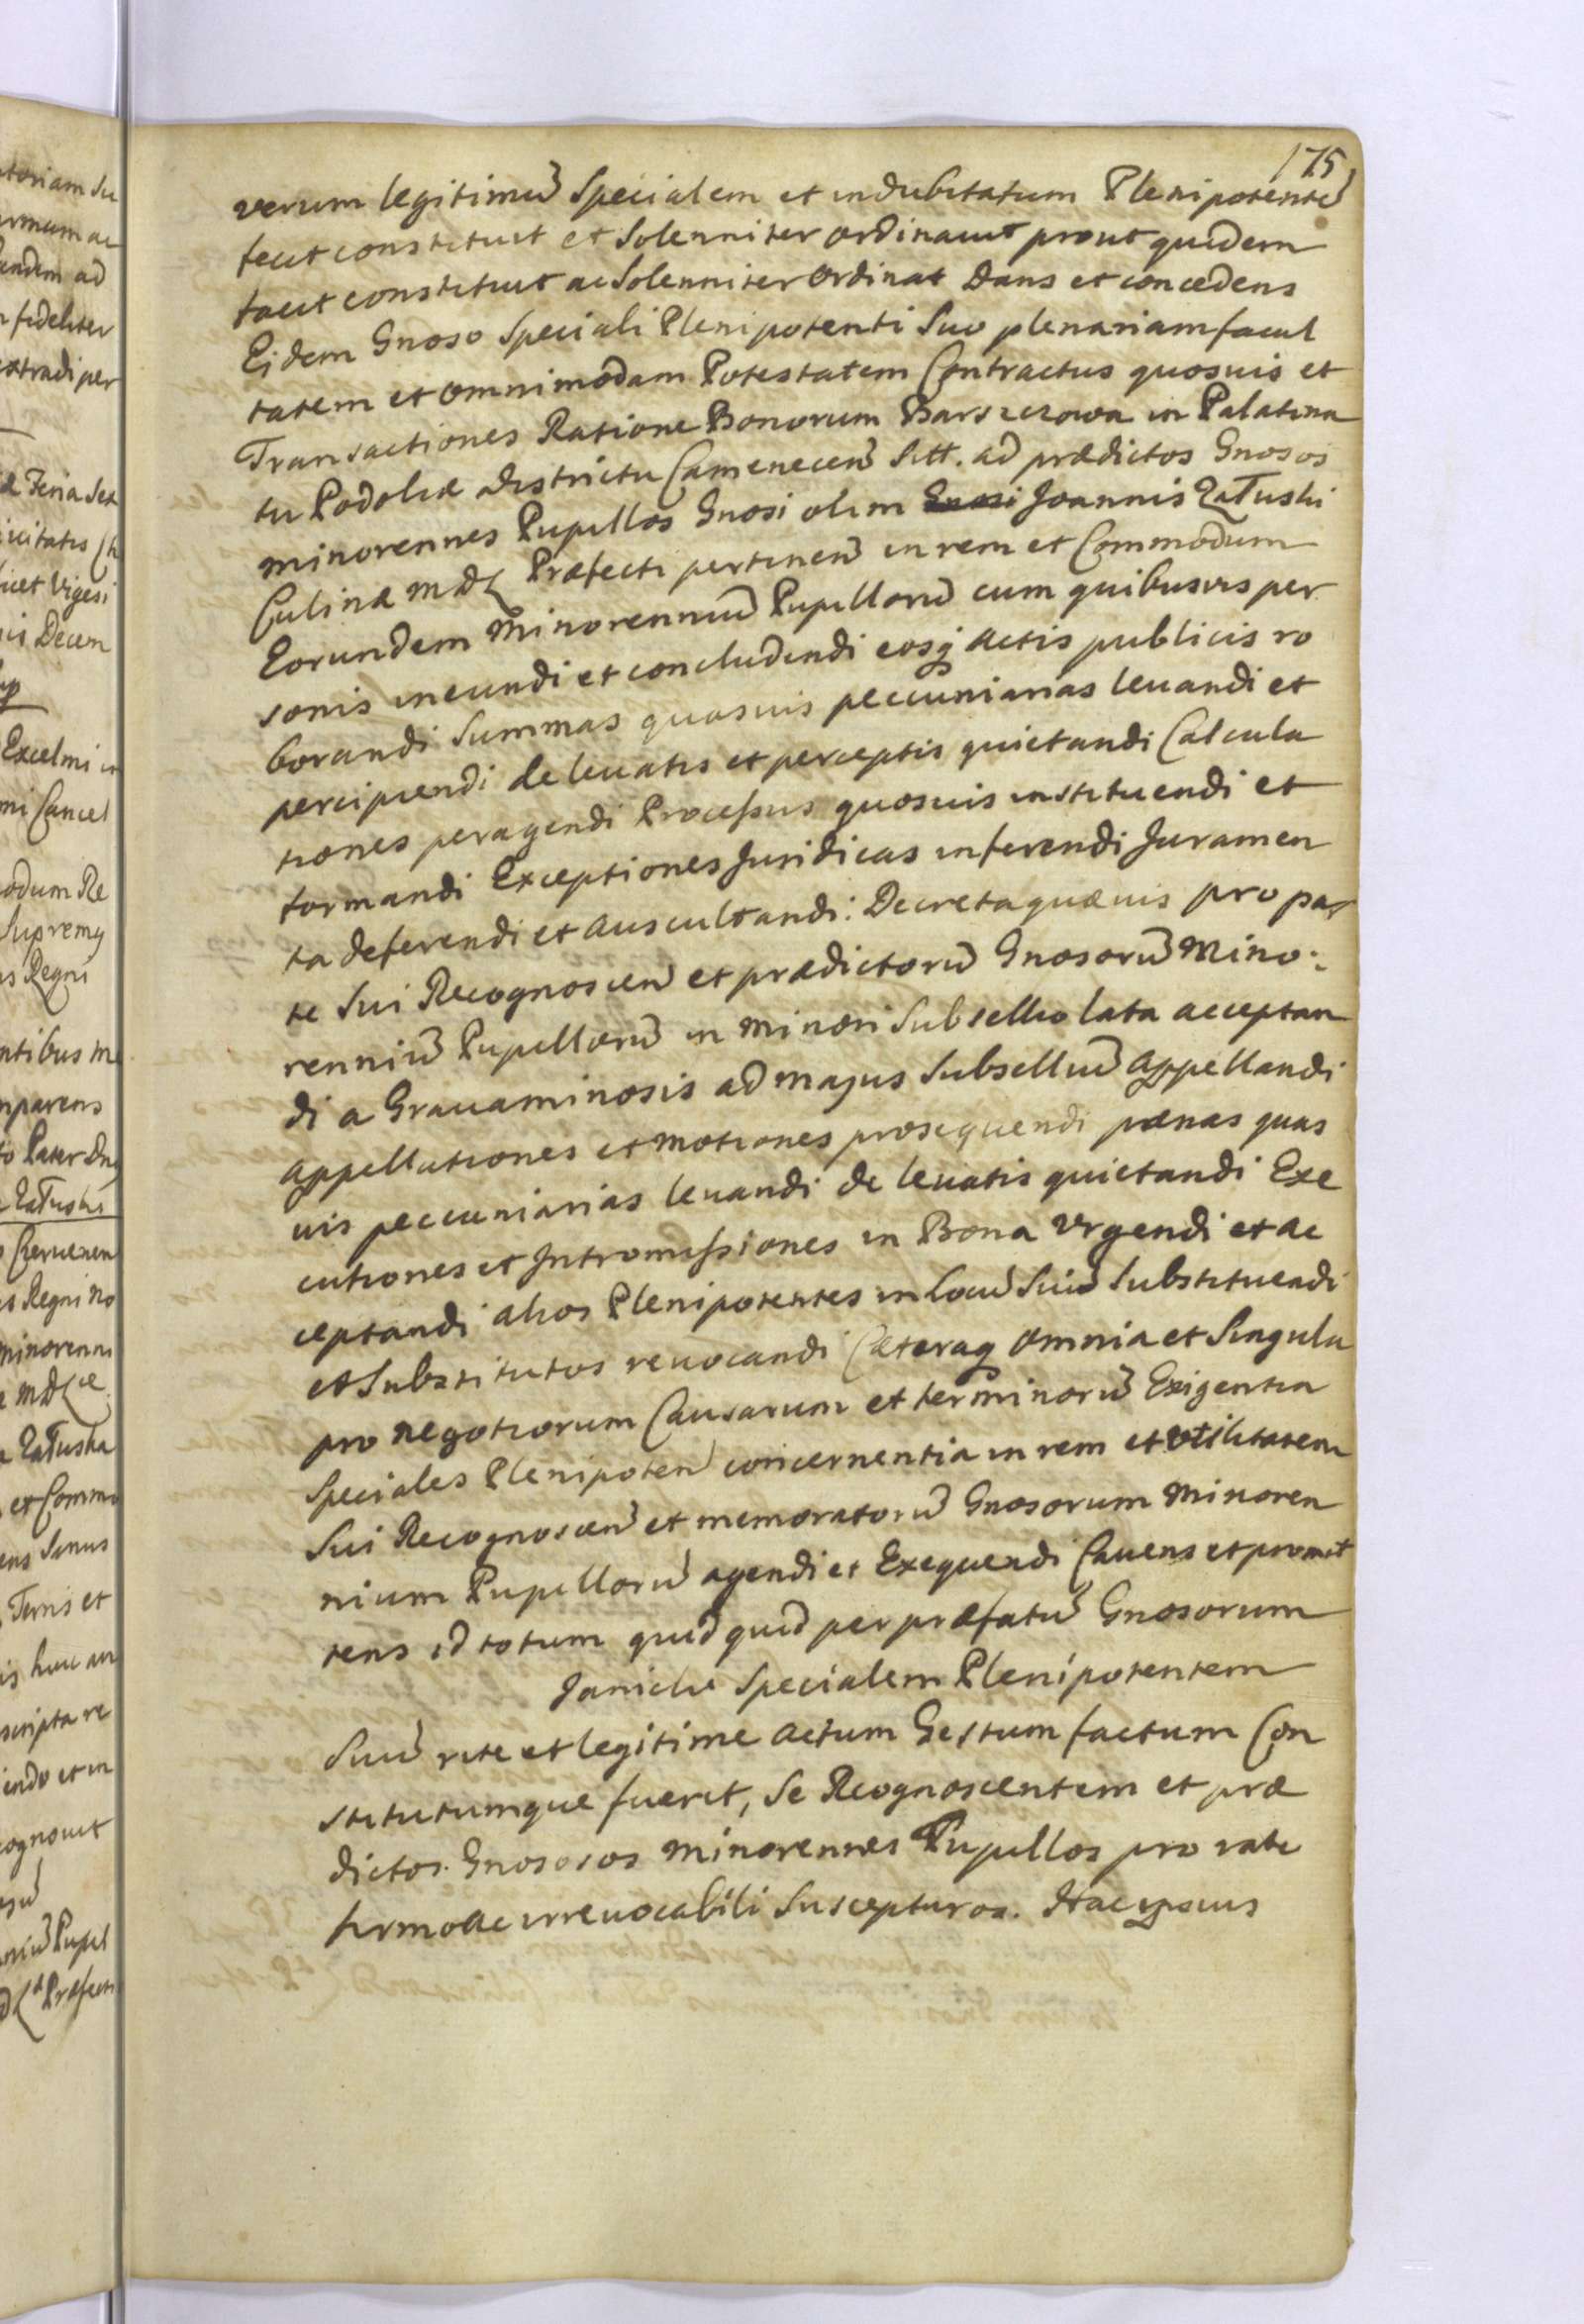 175
verum legitimũ Specialem et indubitatum Plenipotentẽ
fecit constituit et Solenniter ordinauit prout quidem
facit constituit ac Solenniter Ordinat Dans et concedens
Eidem Gnoso Speciali Plenipotenti Suo plenariam facul
tatem et omnimodam Potestatem Contractus quosuis et
Transactiones Ratione Bonorum Barszczowa in Palatina
tu Podoliæ districtu Camenecen̄ Sitt. ad prædictos Gnosos
minorennes Pupillos Gnosi olim Gnosi Joannis Załuski
Culinæ MDL Præfecti pertinen̄ in rem et Commodum
Eorundem Minorenniũ Pupillorũ cum quibusvis per
sonis ineundi et concludendi eosq̨ actis publicis ro
borandi Summas quasuis peccuniarias leuandi et
percipiendi de leuatis et perceptis quietandi Calcula
tiones peragendi Processus quosuis instituendi et
formandi Exceptiones Juridicas inferendi Juramen
ta deferendi et auscultandi: Decreta quæuis pro par
te Sui Recognoscen̄ et prædictorũ Gnosorũ Mino:
renniũ Pupillorũ in minori Subsellio lata acceptan
di a Grauaminosis ad majus Subselliũ appellandi
appellationes et motiones prosequendi pænas quas
uis peccuniarias leuandi de leuatis quietandi Exe
cutiones et Intromissiones in Bona Vrgendi et ac
ceptandi alios Plenipotentes in locũ Suũ Substituendi
et Substitutos reuocandi Cæteraq̨ omnia et Singula
pro negotiorum Causarum et terminorũ Exigentia
Speciales Plenipoten̄ concernentia in rem et vtilitatem
Sui Recognoscen̄ et memoratorũ Gnosorum Minoren
nium Pupillorũ agendi et Exequendi Cauens et promit
tens id totum quid quid per præfatũ Gnosorum
Janicki Specialem Plenipotentem
Suũ rite et legitime actum Gestum factum Con
stitutumque fuerit, Se Recognoscentem et præ
dictos Gnososos Minorennes Pupillos pro rato
firmo ac irreuocabili Suscepturos.